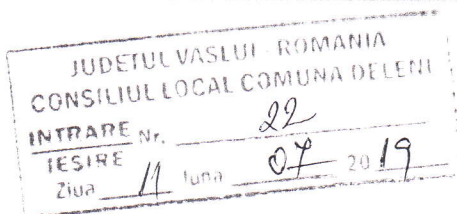 JUDETUL VASLUI - ROMANIA
CONSILIUL LOCAL COMUNA DELENI
INTRARE Nr. 22
IESIRE
Ziua 11 luna 07 2019